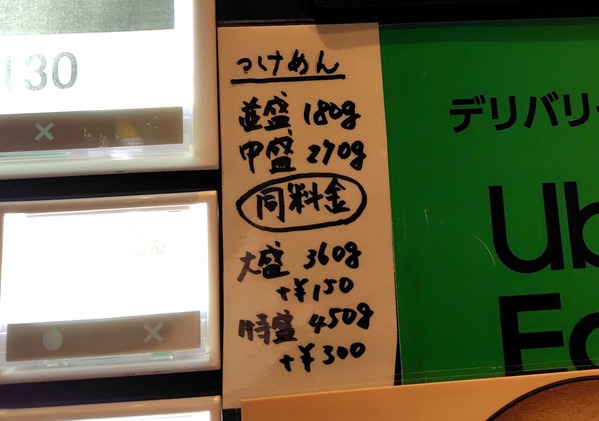 130
つけめん
並盛 180g
中盛 270g
同料金
大盛 360g
+¥150
特盛 450g
+¥300
デリバリ
Ub